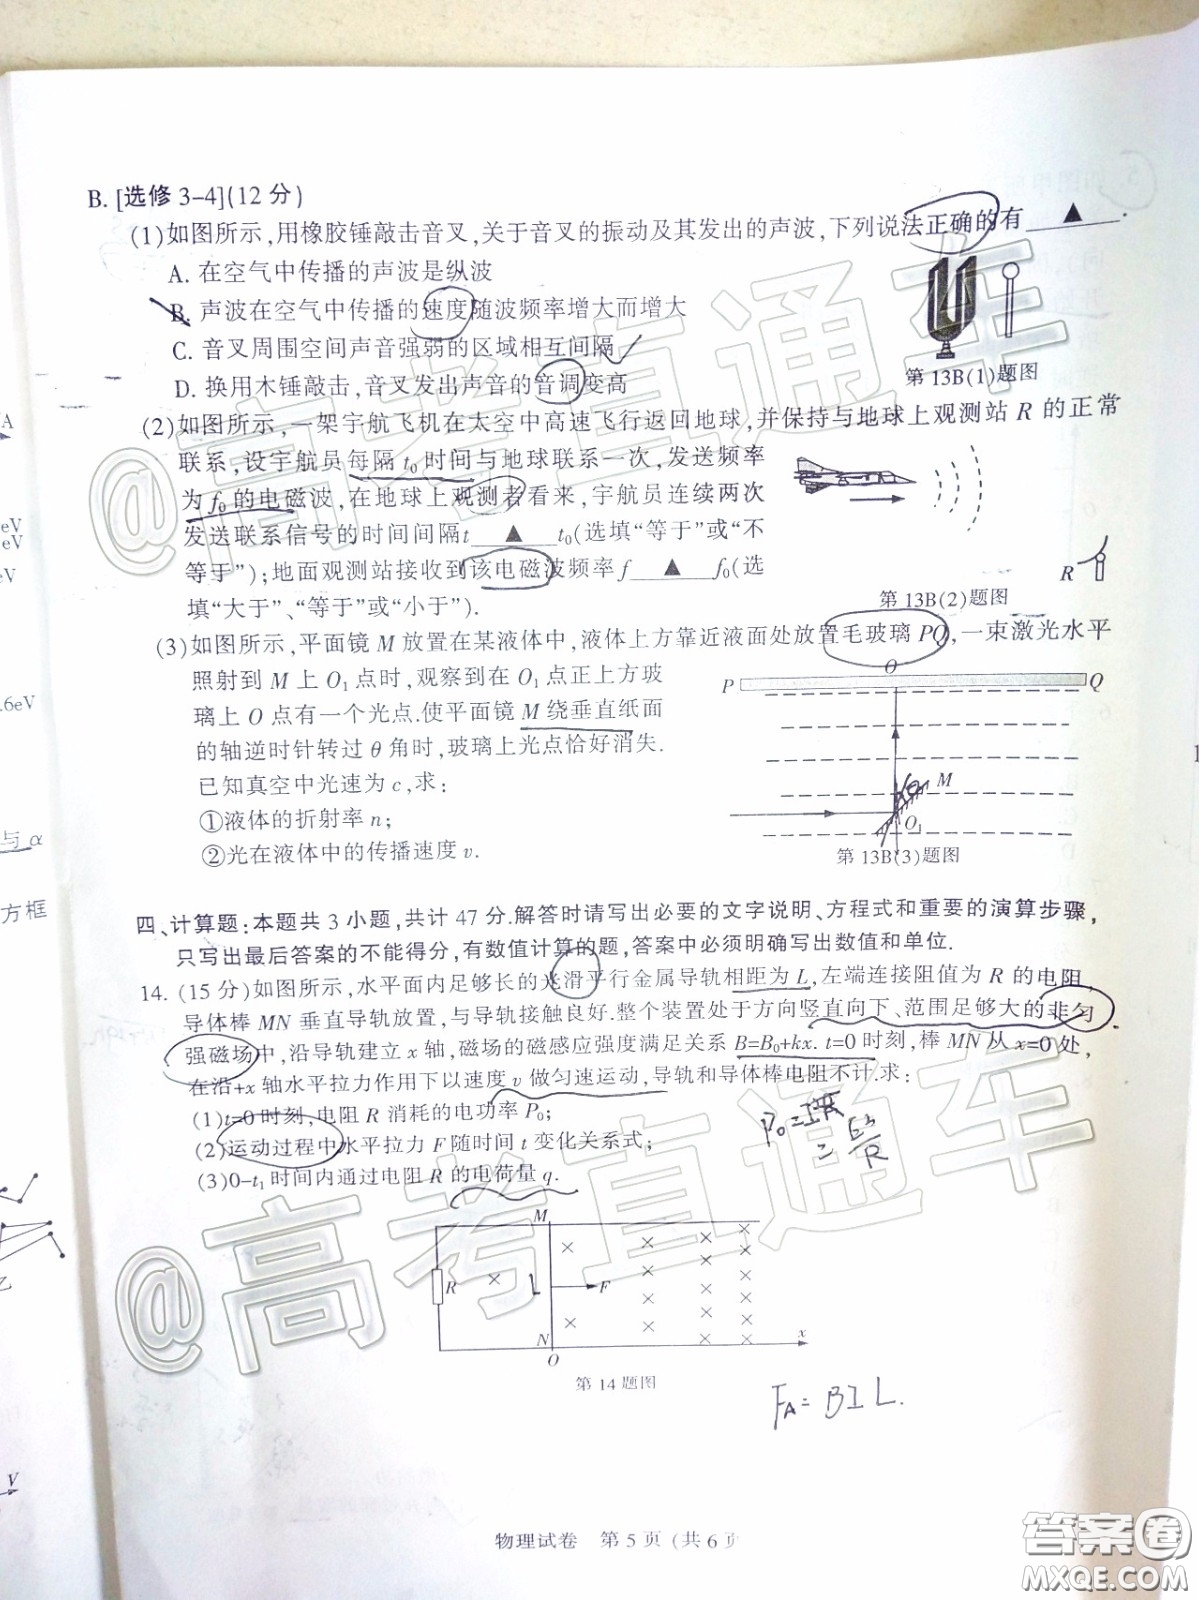 B. [选修 3-4](12 分)
(1)如图所示,用橡胶锤敲击音叉,关于音叉的振动及其发出的声波,下列说法正确的有 ▲ .
A. 在空气中传播的声波是纵波
B. 声波在空气中传播的速度随波频率增大而增大
C. 音叉周围空间声音强弱的区域相互间隔
D. 换用木锤敲击,音叉发出声音的音调变高
第 13B(1)题图
(2)如图所示,一架宇航飞机在太空中高速飞行返回地球,并保持与地球上观测站 R 的正常
联系,设宇航员每隔 t₀ 时间与地球联系一次,发送频率
为 f₀ 的电磁波,在地球上观测者看来,宇航员连续两次
发送联系信号的时间间隔t ▲ t₀(选填“等于”或“不
等于”);地面观测站接收到该电磁波频率 f ▲ f₀(选
填“大于”、“等于”或“小于”).
R
第 13B(2)题图
(3)如图所示,平面镜 M 放置在某液体中,液体上方靠近液面处放置毛玻璃 PQ,一束激光水平
照射到 M 上 O₁ 点时,观察到在 O₁ 点正上方玻
璃上 O 点有一个光点.使平面镜 M 绕垂直纸面
的轴逆时针转过 θ 角时,玻璃上光点恰好消失.
已知真空中光速为 c,求:
①液体的折射率 n;
②光在液体中的传播速度 v.
O
P
Q
M
O₁
第 13B(3)题图
四、计算题:本题共 3 小题,共计 47 分.解答时请写出必要的文字说明、方程式和重要的演算步骤,
只写出最后答案的不能得分,有数值计算的题,答案中必须明确写出数值和单位.
14. (15 分)如图所示,水平面内足够长的光滑平行金属导轨相距为 L,左端连接阻值为 R 的电阻,
导体棒 MN 垂直导轨放置,与导轨接触良好.整个装置处于方向竖直向下、范围足够大的非匀
强磁场中,沿导轨建立 x 轴,磁场的磁感应强度满足关系 B=B₀+kx. t=0 时刻,棒 MN 从 x=0 处,
在沿+x 轴水平拉力作用下以速度 v 做匀速运动,导轨和导体棒电阻不计.求:
(1)t=0 时刻,电阻 R 消耗的电功率 P₀;
(2)运动过程中水平拉力 F 随时间 t 变化关系式;
(3)0-t₁ 时间内通过电阻 R 的电荷量 q.
M
R
L
F
N
O
x
第 14 题图
F_A = BIL.
物理试卷 第 5 页 (共 6 页
A
eV
eV
eV
.6eV
与 α
方框
乙
V
@高考直通车
@高考直通车
答案圈
MXQE.COM